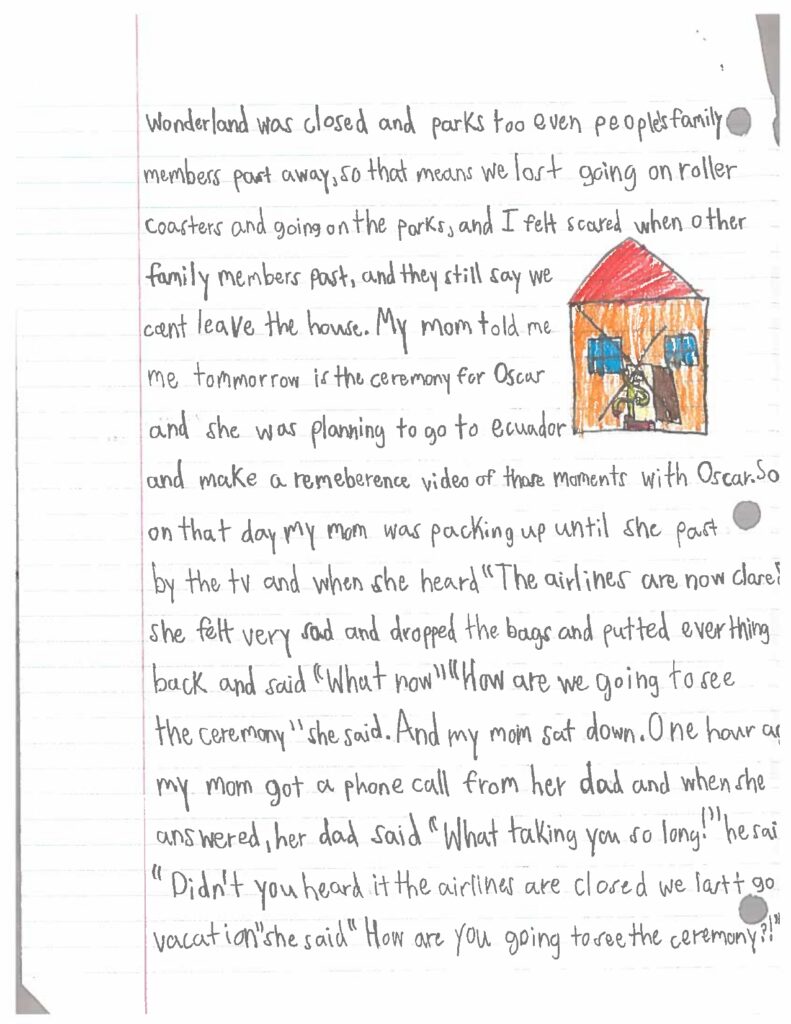 Wonderland was closed and parks too even people's family
members past away, so that means we lost going on roller
coasters and going on the parks, and I felt scared when other
family members past, and they still say we
cant leave the house. My mom told me
me tommorrow is the ceremony for Oscar
and she was planning to go to ecuador
and make a remeberence video of those moments with Oscar. So
on that day my mom was packing up until she past
by the tv and when she heard "The airlines are now
she felt very sad and dropped the bags and putted everthing
back and said "What now" "How are we going to see
the ceremony" she said. And my mom sat down. One hour
my mom got a phone call from her dad and when she
answered, her dad said "What taking you so long!" he sai
"Didn't you heard it the airlines are closed we go
vacation" she said "How are you going to see the ceremony?!"